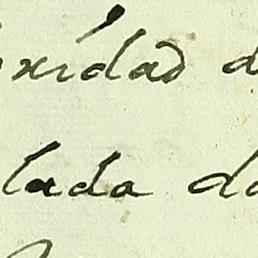 oxidad d
lada do